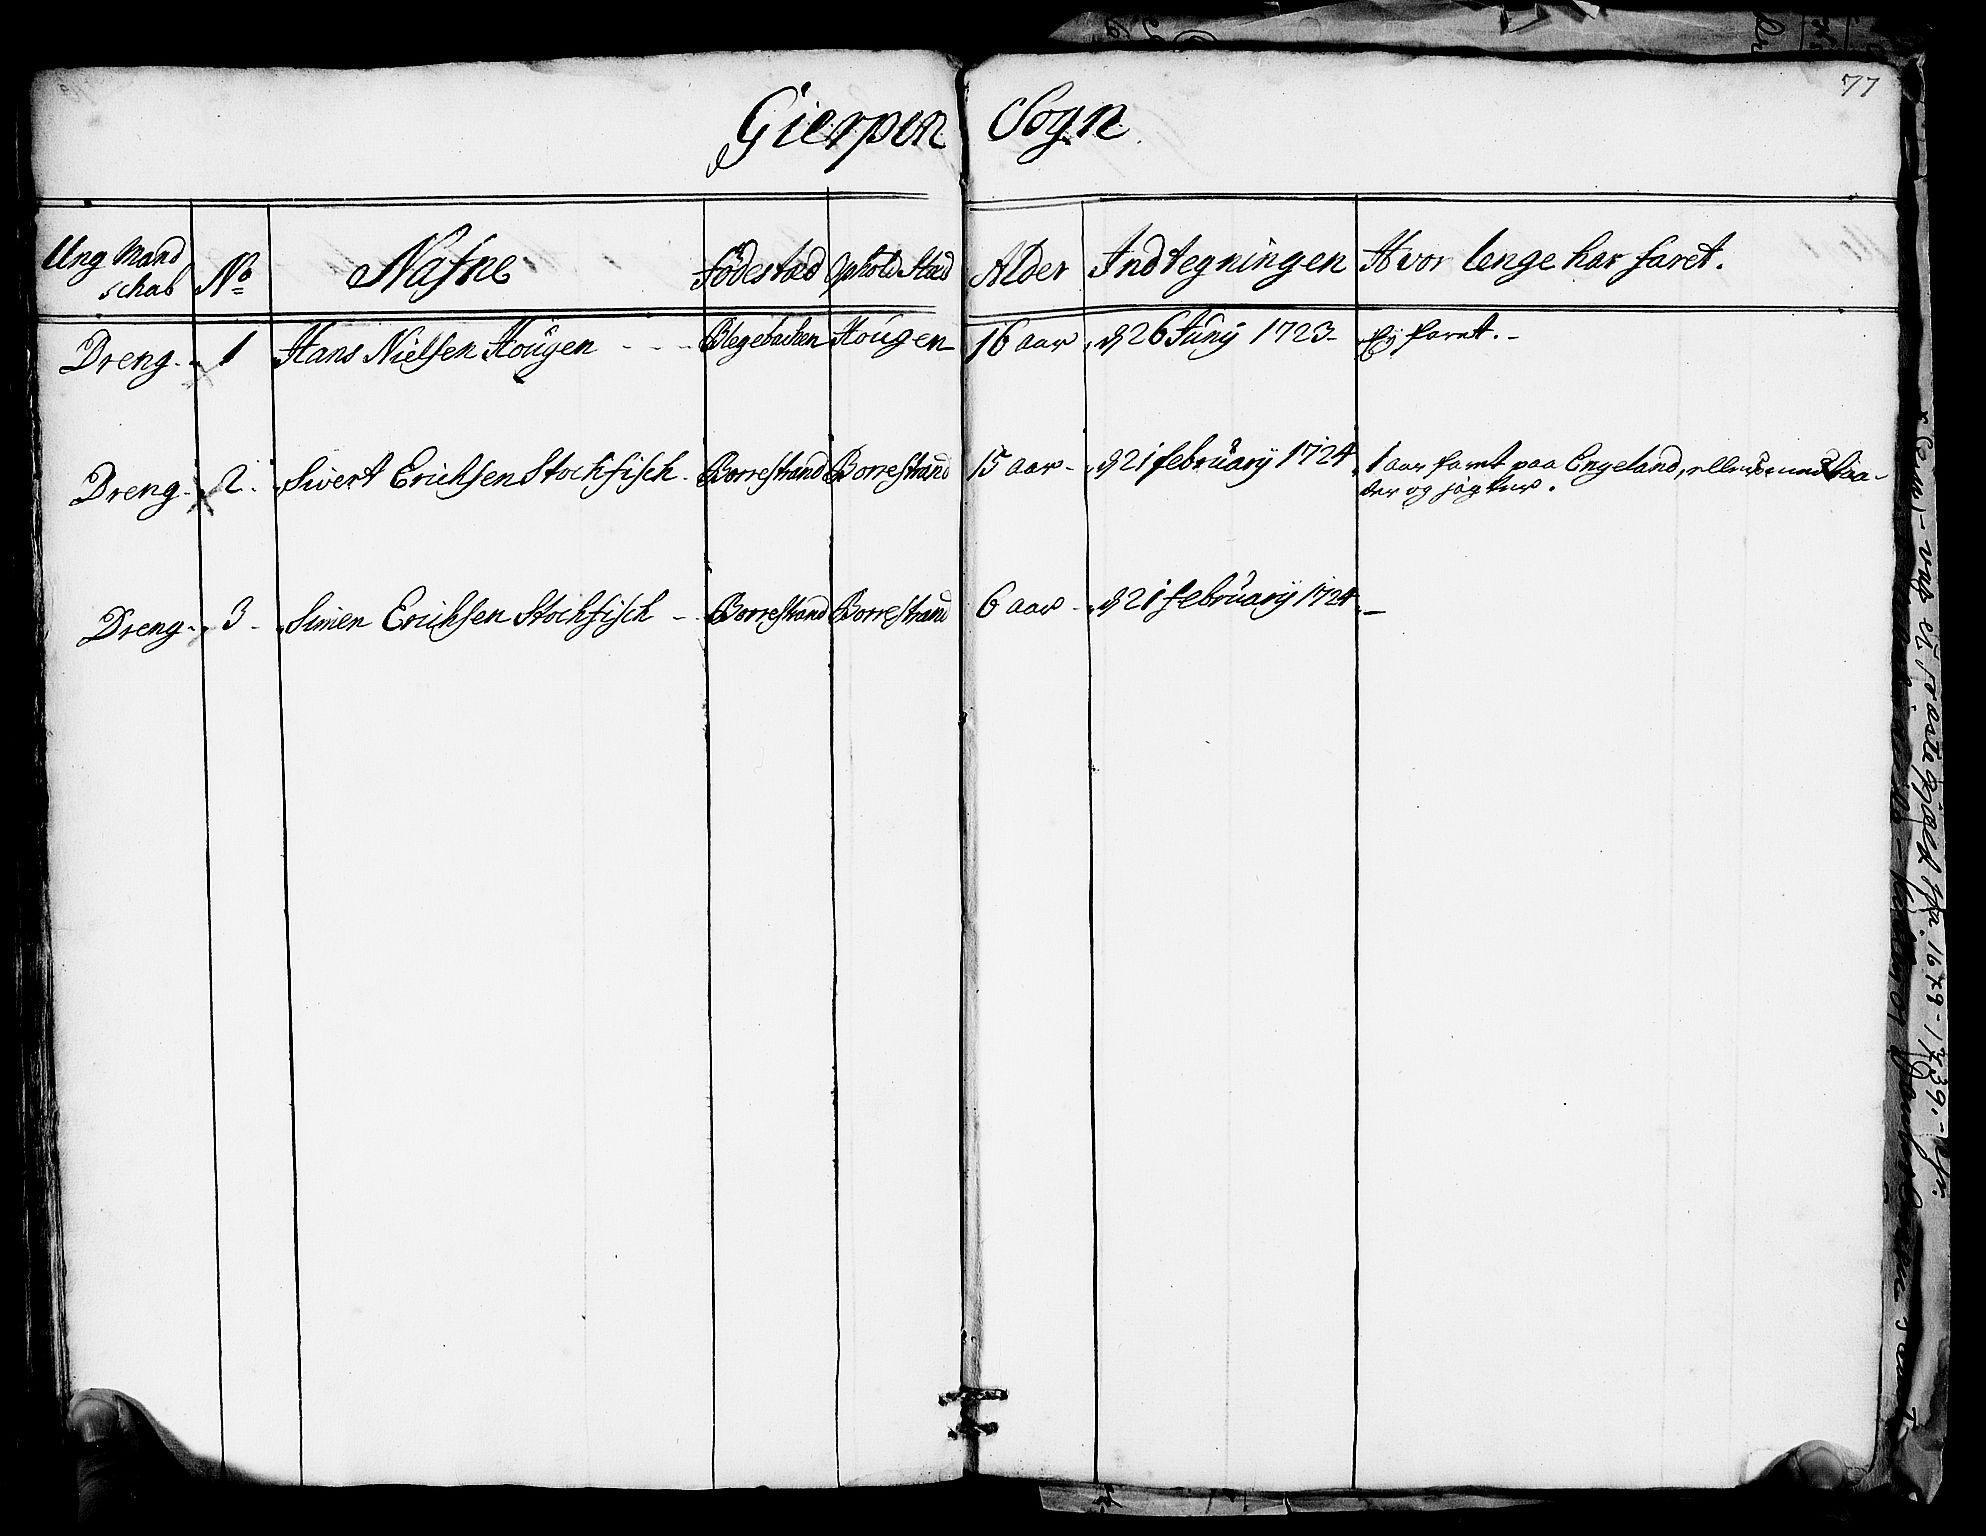 77
Gierpen Sogn
Ung Mand schab No Nafne Födestæd Ophold Stæd Alder Indtegningen Hvor lenge har faret.
Dreng - 1 Hans Nielsen Hougen - - - Blegebachen Hougen - 16 aar d 26 Juny 1723 - Ej faret. -
Dreng - 2. Sivert Erichsen Stochfisch - Borrestrand Borrestrand 15 aar - d 21 february 1724 1 aar faret paa Engeland,
der og jagter.
Dreng - 3 - Simen Erichsen Stochfisch - Borrestrand Borrestrand 6 aar - d 21 february 1724 -